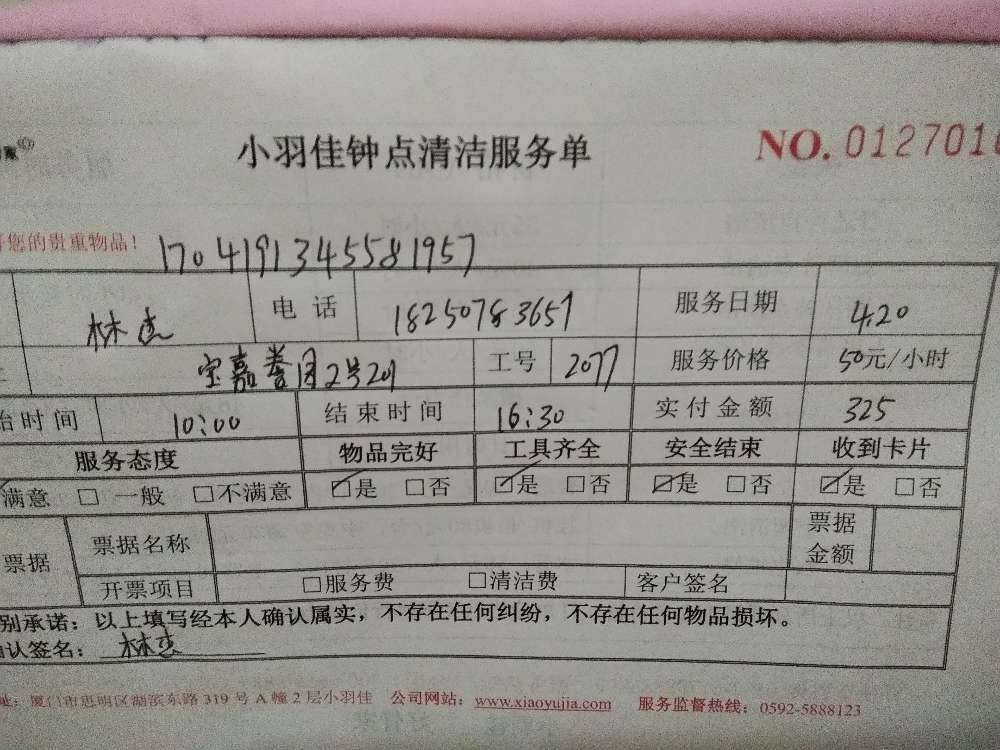 小羽佳钟点清洁服务单 NO. 0127016
您的贵重物品! 170419134558​1957
林杰 电话 18250783657 服务日期 4.20
宝嘉誉园2号201 工号 2077 服务价格 50元/小时
始时间 10:00 结束时间 16:30 实付金额 325
服务态度 物品完好 工具齐全 安全结束 收到卡片
满意 □ 一般 □不满意 ☑是 □否 ☑是 □否 ☑是 □否 ☑是 □否
票据 票据名称 票据金额
开票项目 □服务费 □清洁费 客户签名
别承诺：以上填写经本人确认属实，不存在任何纠纷，不存在任何物品损坏。
认签名：林杰
址：厦门市思明区湖滨东路 319 号 A 幢 2 层小羽佳 公司网站：www.xiaoyujia.com 服务监督热线：0592-5888123